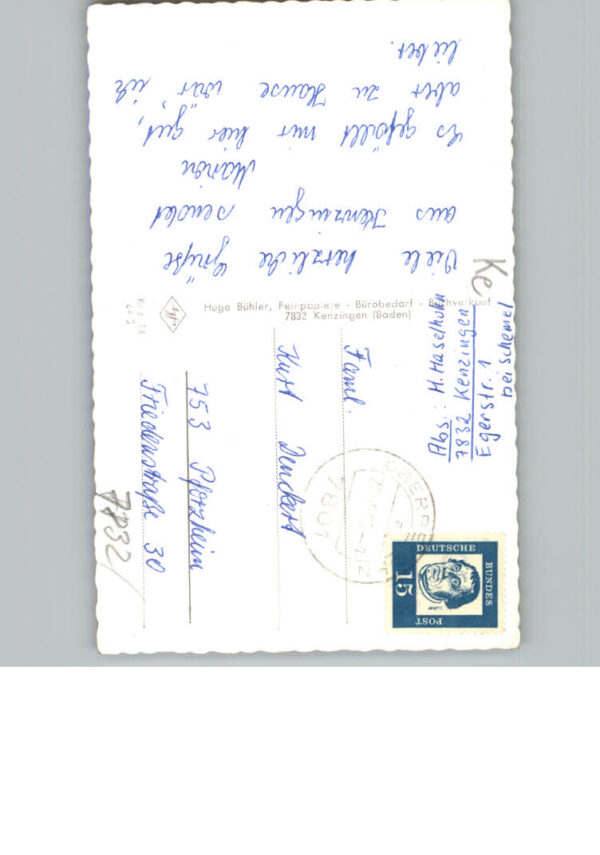 Viele herzliche Grüße
aus Kenzingen sendet
Marion
Es gefällt mir hier gut,
aber zu Hause wär, ich
lieber.
Hugo Bühler, Feinpapiere - Bürobedarf - Buchverkauf
7832 Kenzingen (Baden)
Abs.: M. Haselhofen
7832 Kenzingen
Egerstr. 1
bei Schemel
Ke
Faml.
Kurt Denckert
753 Pforzheim
Friedenstraße 30
7832/
7801
DEUTSCHE
BUNDES
POST
15